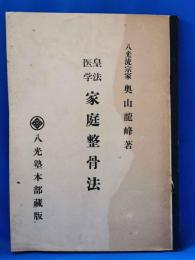 八光流宗家 奥山龍峰著
皇法医学 家庭整骨法
八光塾本部藏版